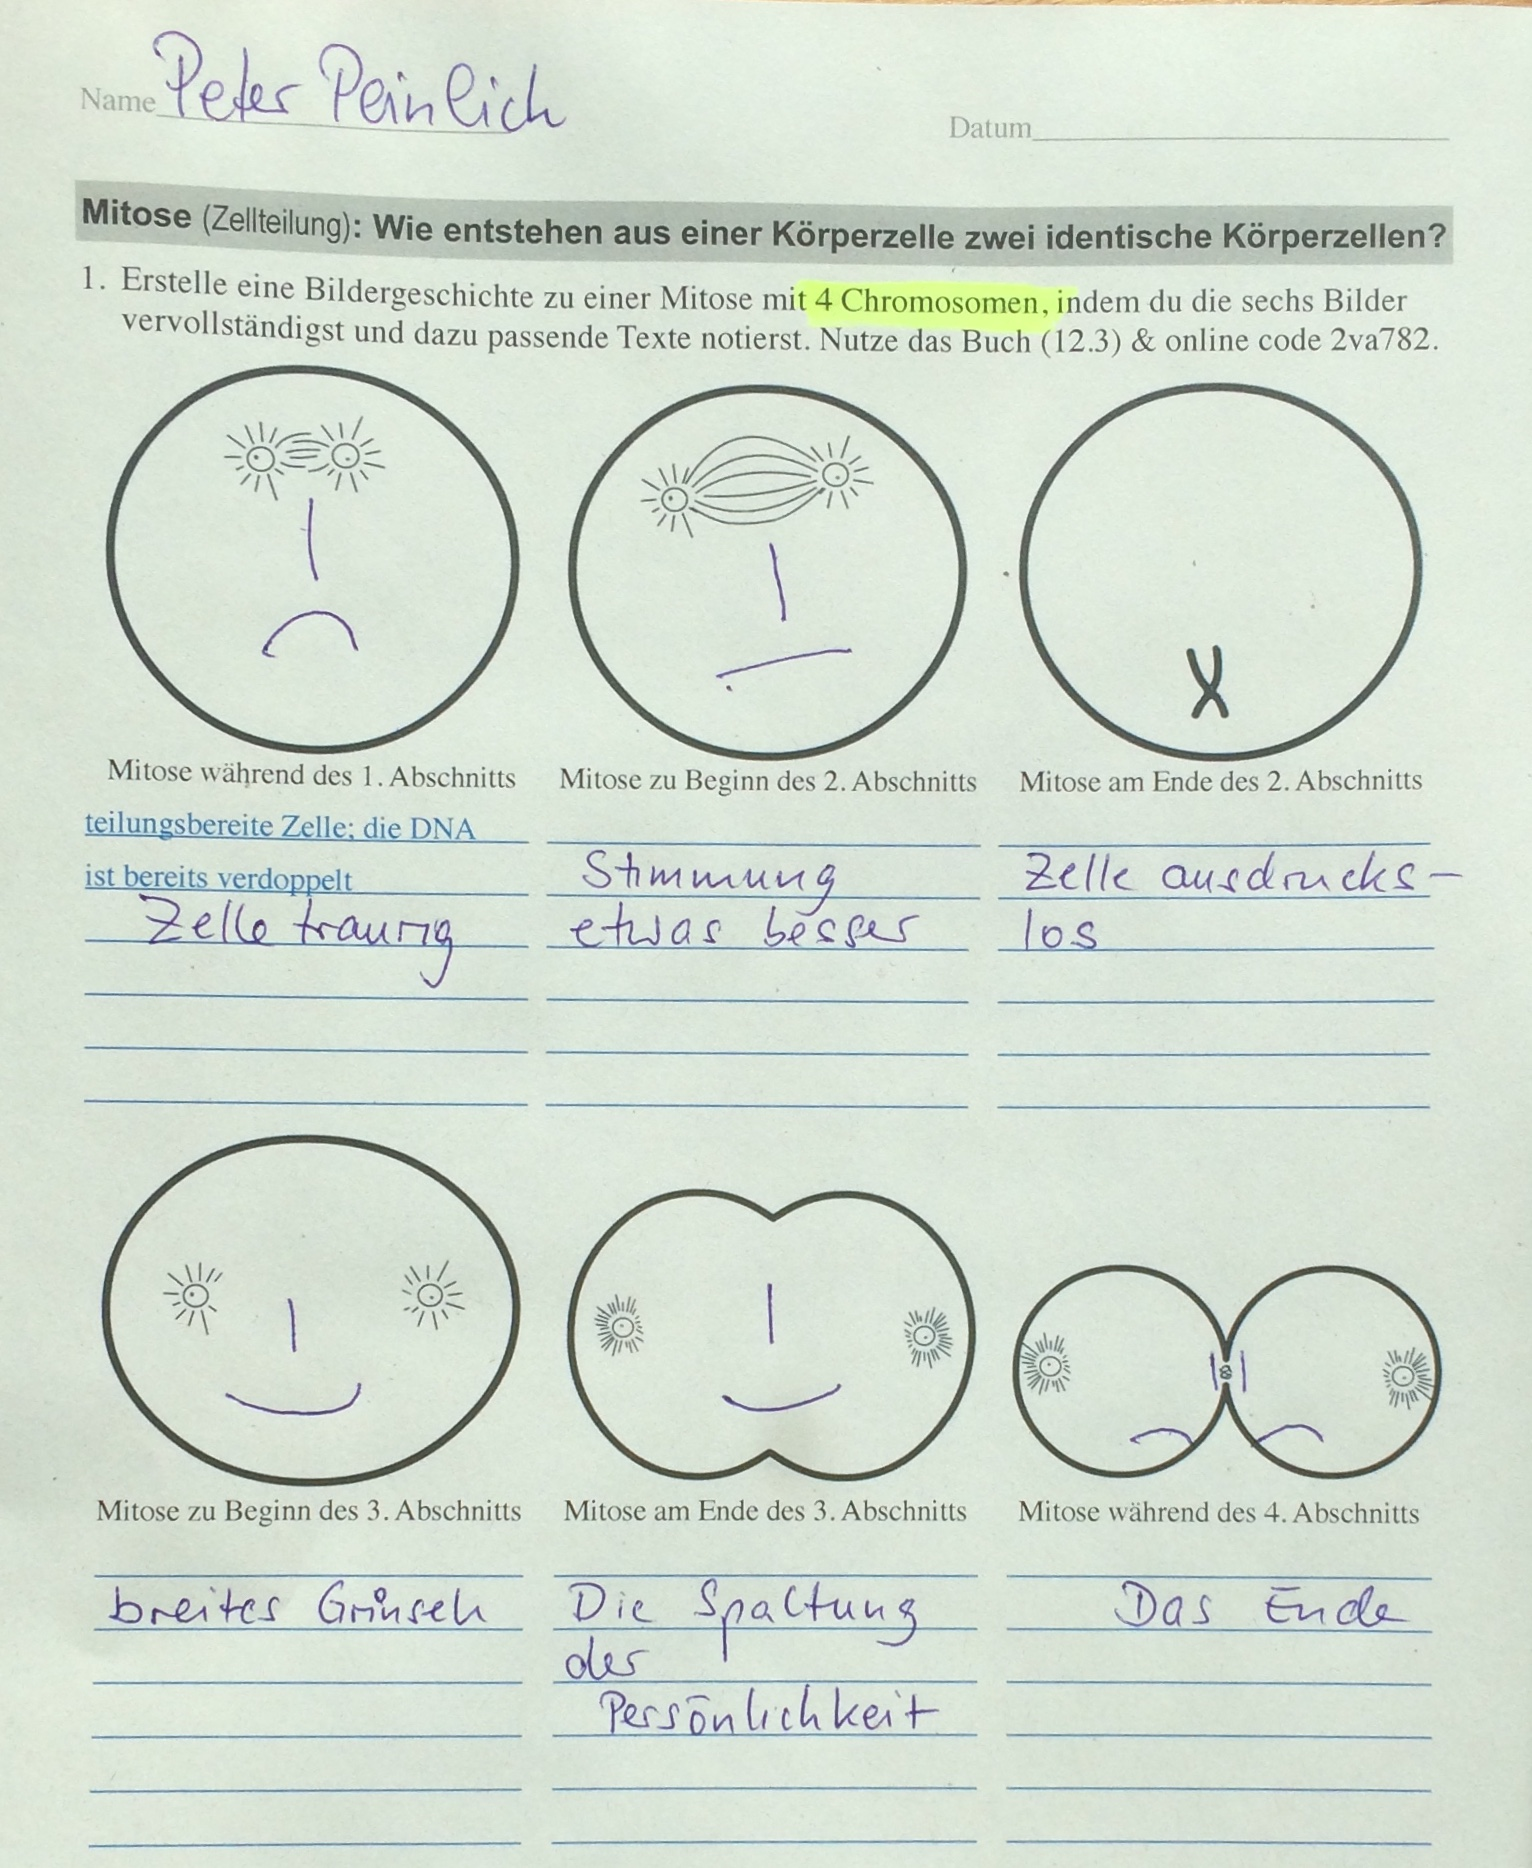 Name Peter Peinlich
Datum
Mitose (Zellteilung): Wie entstehen aus einer Körperzelle zwei identische Körperzellen?
1. Erstelle eine Bildergeschichte zu einer Mitose mit 4 Chromosomen, indem du die sechs Bilder
vervollständigst und dazu passende Texte notierst. Nutze das Buch (12.3) & online code 2va782.
Mitose während des 1. Abschnitts
teilungsbereite Zelle; die DNA
ist bereits verdoppelt
Zelle traurig
Mitose zu Beginn des 2. Abschnitts
Stimmung
etwas besser
Mitose am Ende des 2. Abschnitts
Zelle ausdrucks-
los
Mitose zu Beginn des 3. Abschnitts
breites Grinsen
Mitose am Ende des 3. Abschnitts
Die Spaltung
der
Persönlichkeit
Mitose während des 4. Abschnitts
Das Ende